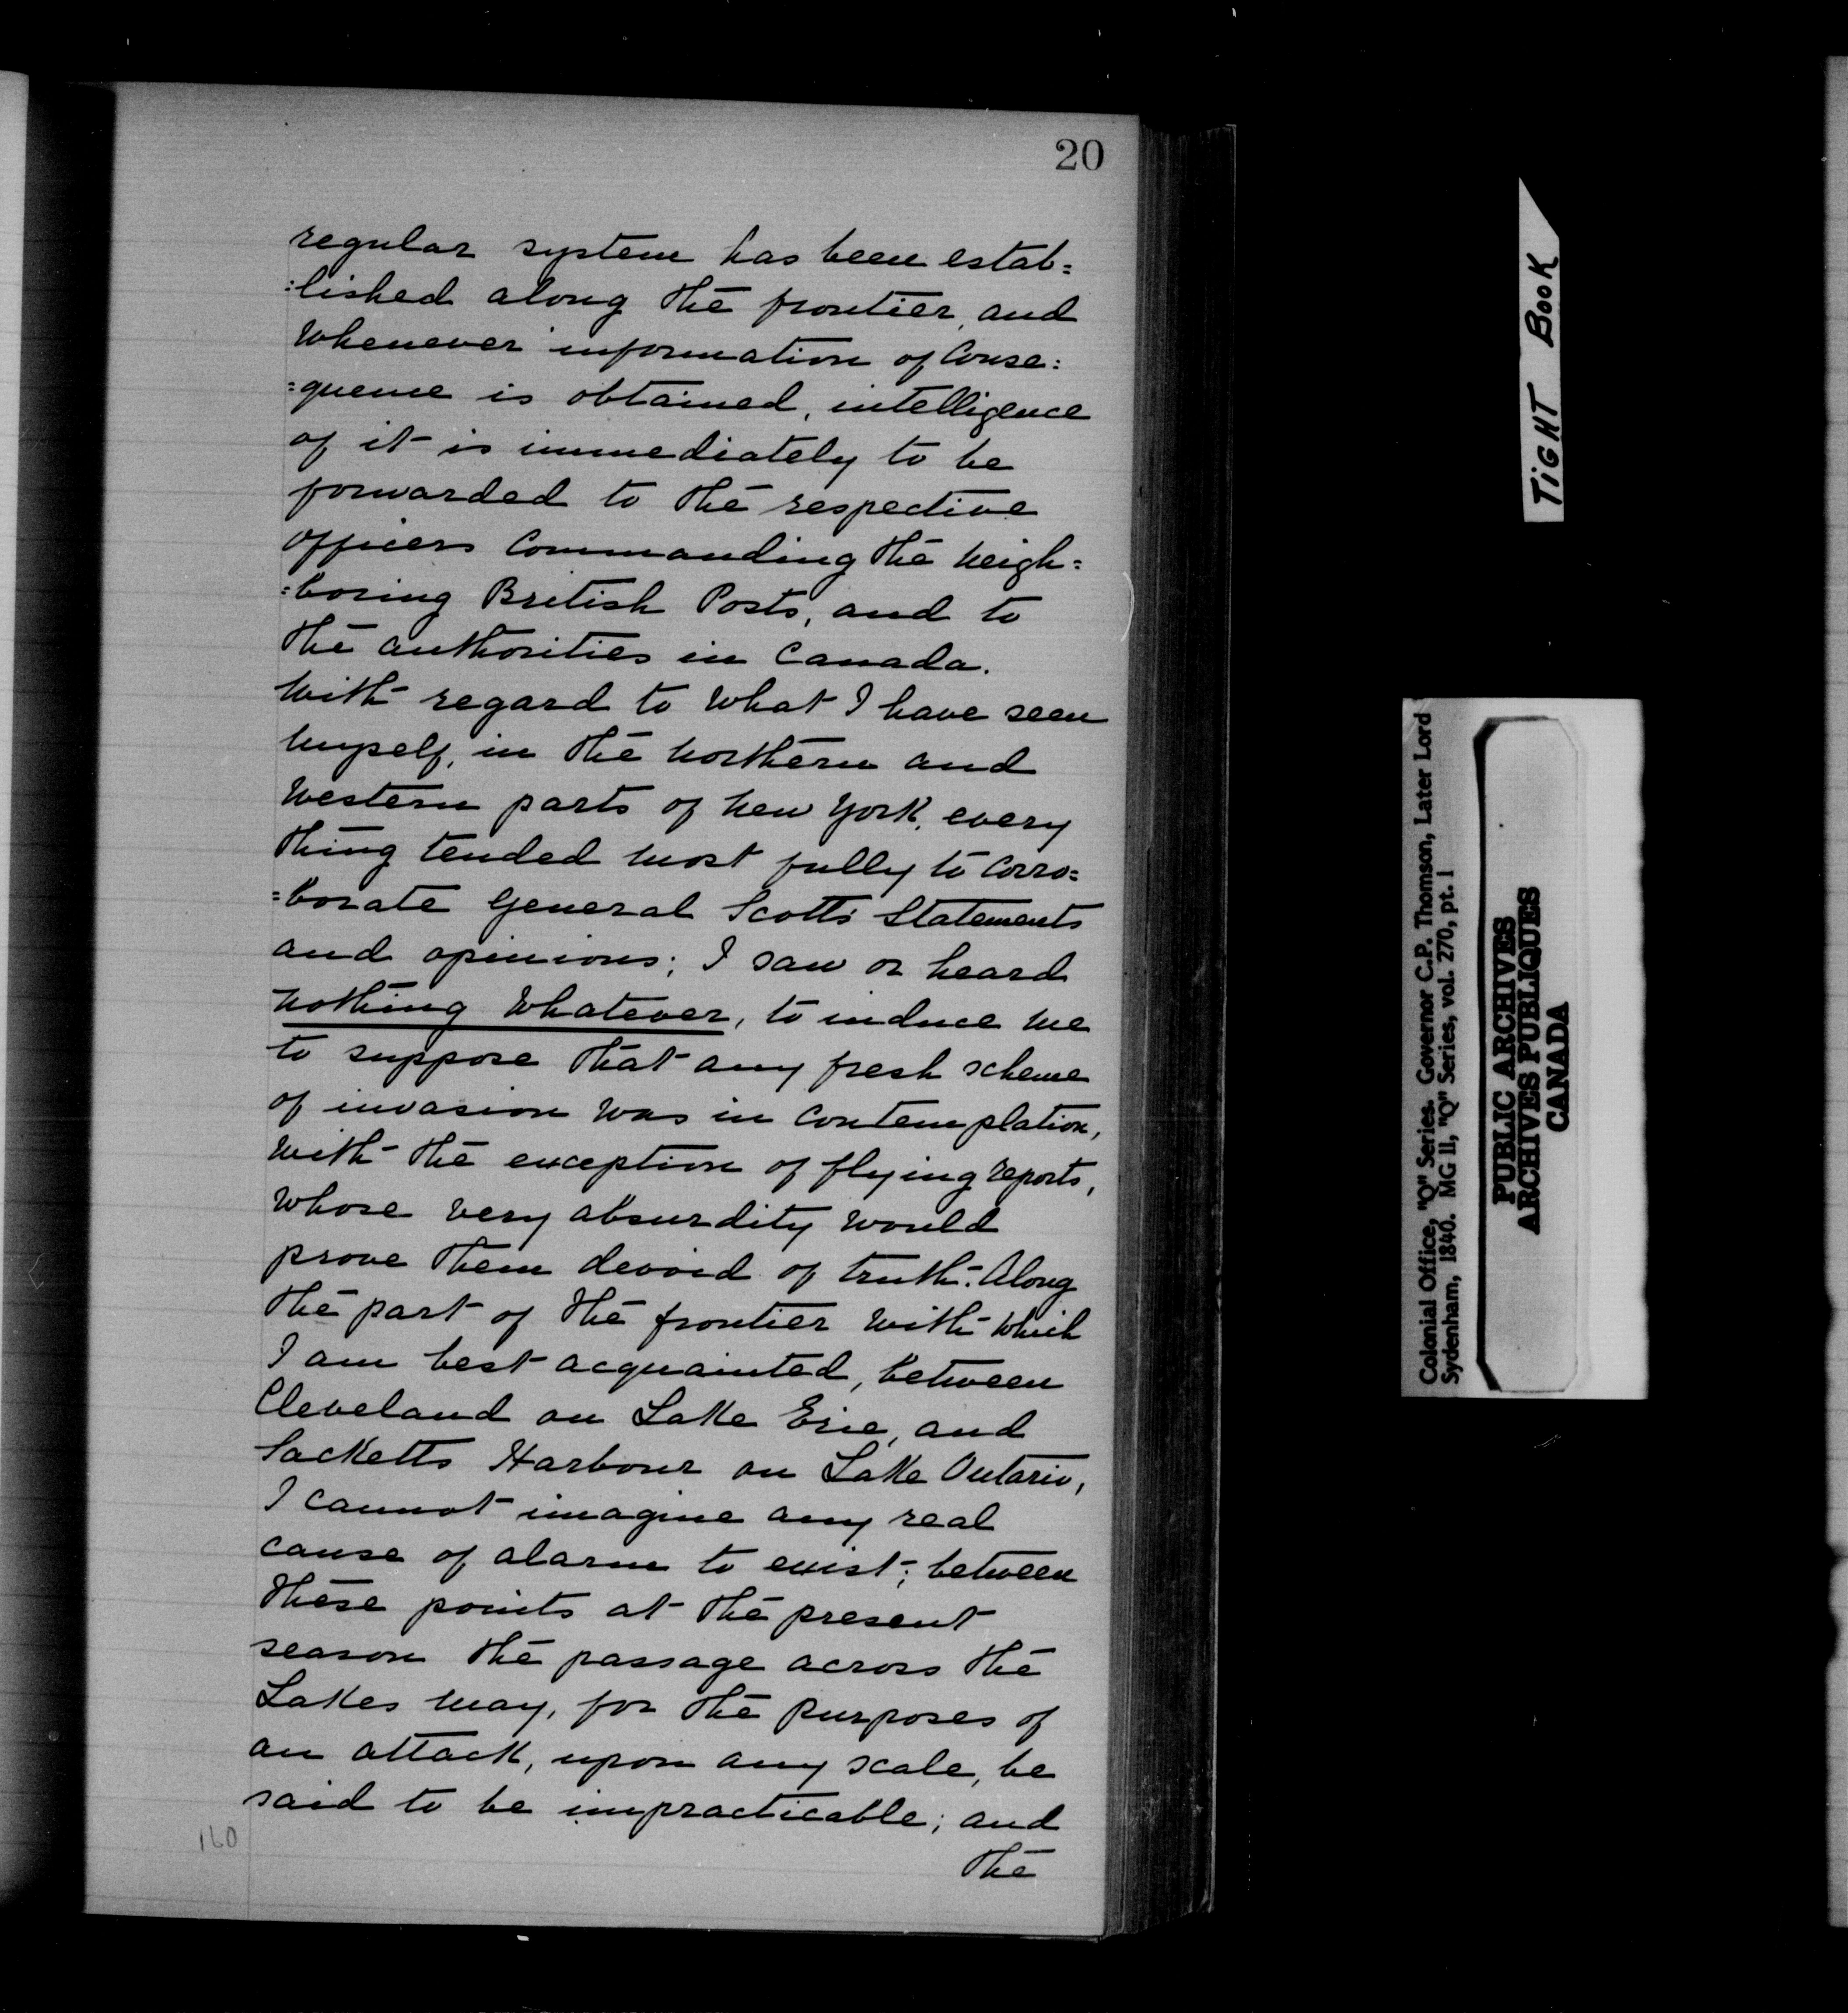 20
regular system has been estab=
=lished along the frontier, and
whenever information of Conse=
=quence is obtained, intelligence
of it is immediately to be
forwarded to the respective
officers Commanding the neigh=
=boring British Posts, and to
the authorities in Canada.
With regard to what I have seen
myself, in the northern and
Western parts of New York, every
thing tended most fully to Corro=
=borate General Scott's Statements
and opinions; I saw or heard
nothing whatever, to induce me
to suppose that any fresh scheme
of invasion was in Contemplation,
with the exception of flying reports,
whose very absurdity would
prove them devoid of truth. Along
the part of the frontier with which
I am best acquainted, between
Cleveland on Lake Erie, and
Sacketts Harbour on Lake Ontario,
I cannot imagine any real
cause of alarm to exist; between
these points at the present
season the passage across the
Lakes may, for the purposes of
an attack, upon any scale, be
said to be impracticable; and
the
160
TIGHT BOOK
Colonial Office, "Q" Series. Governor C.P. Thomson, Later Lord
Sydenham, 1840. MG 11, "Q" Series, vol. 270, pt. 1
PUBLIC ARCHIVES
ARCHIVES PUBLIQUES
CANADA